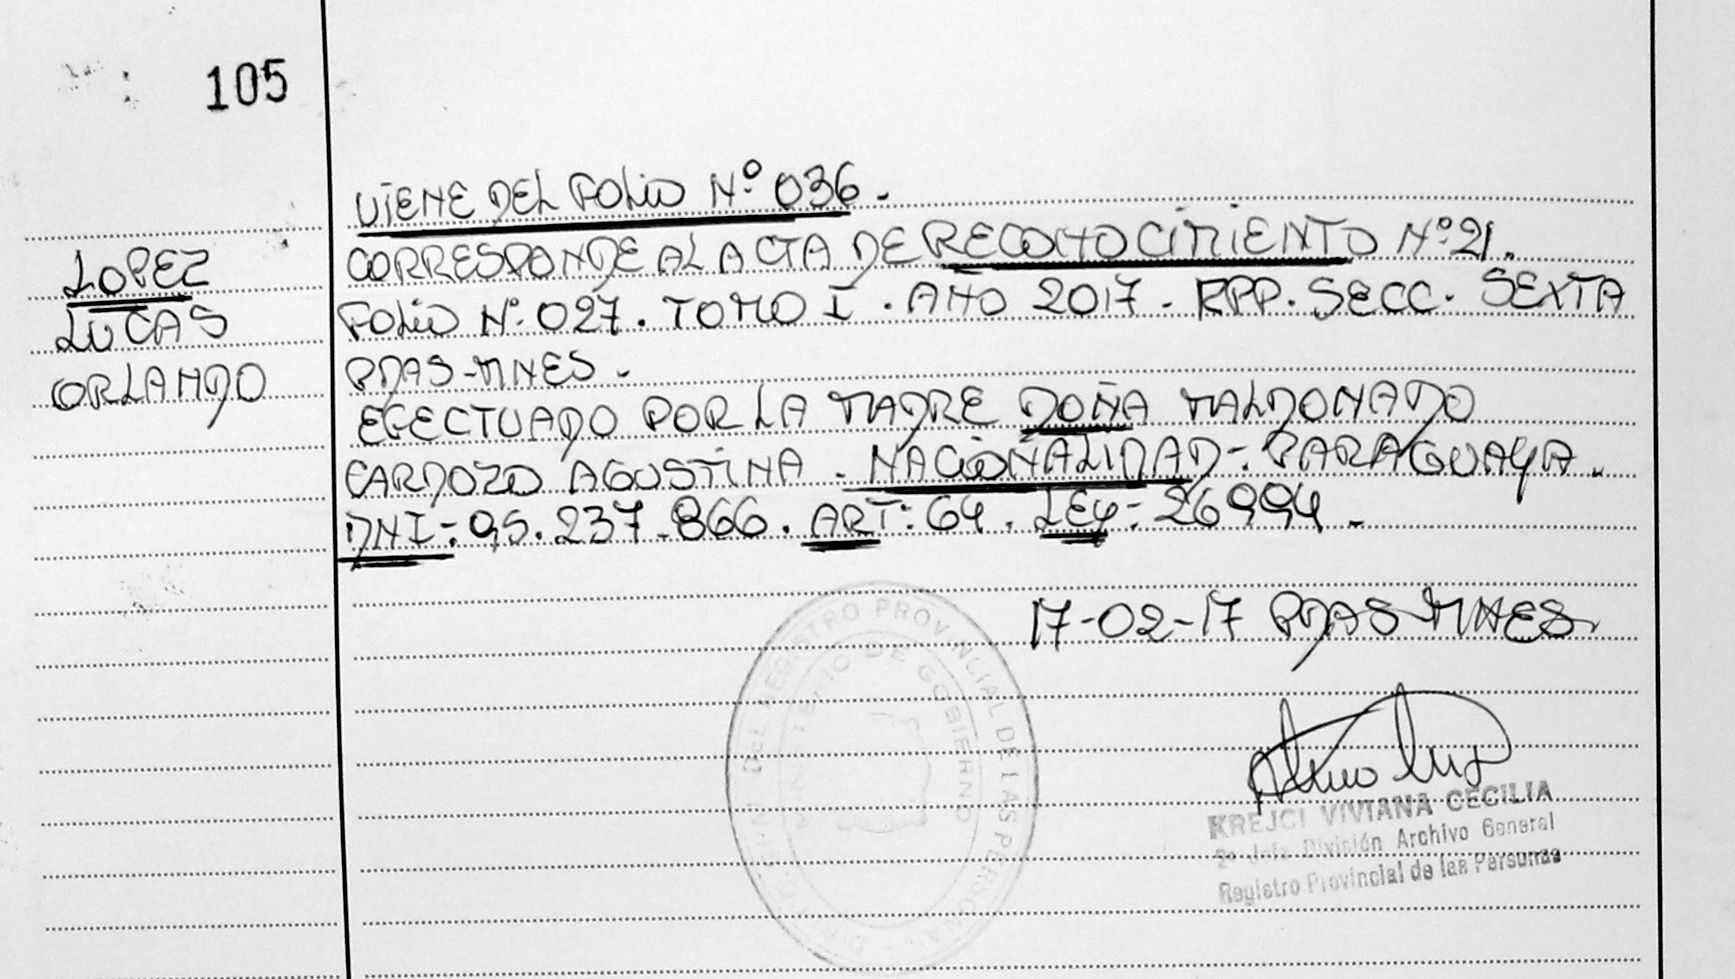 105
LOPEZ
LUCAS
ORLANDO
VIENE DEL FOLIO Nº 036.
CORRESPONDE AL ACTA DE RECONOCIMIENTO Nº 21.
FOLIO Nº 027. TOMO I. AÑO 2017. RPP. SECC. SEXTA
PDAS-MNES.
EFECTUADO POR LA MADRE DOÑA MALDONADO
CARDOZO AGUSTINA. NACIONALIDAD-: PARAGUAYA.
DNI-: 95.237.866. ART: 64. LEY-: 26994.
17-02-17 PDAS MNES
DEL REGISTRO PROVINCIAL DE LAS PERSONAS
MINISTERIO DE GOBIERNO
KREJCI VIVIANA CECILIA
2º Jefa División Archivo General
Registro Provincial de las Personas